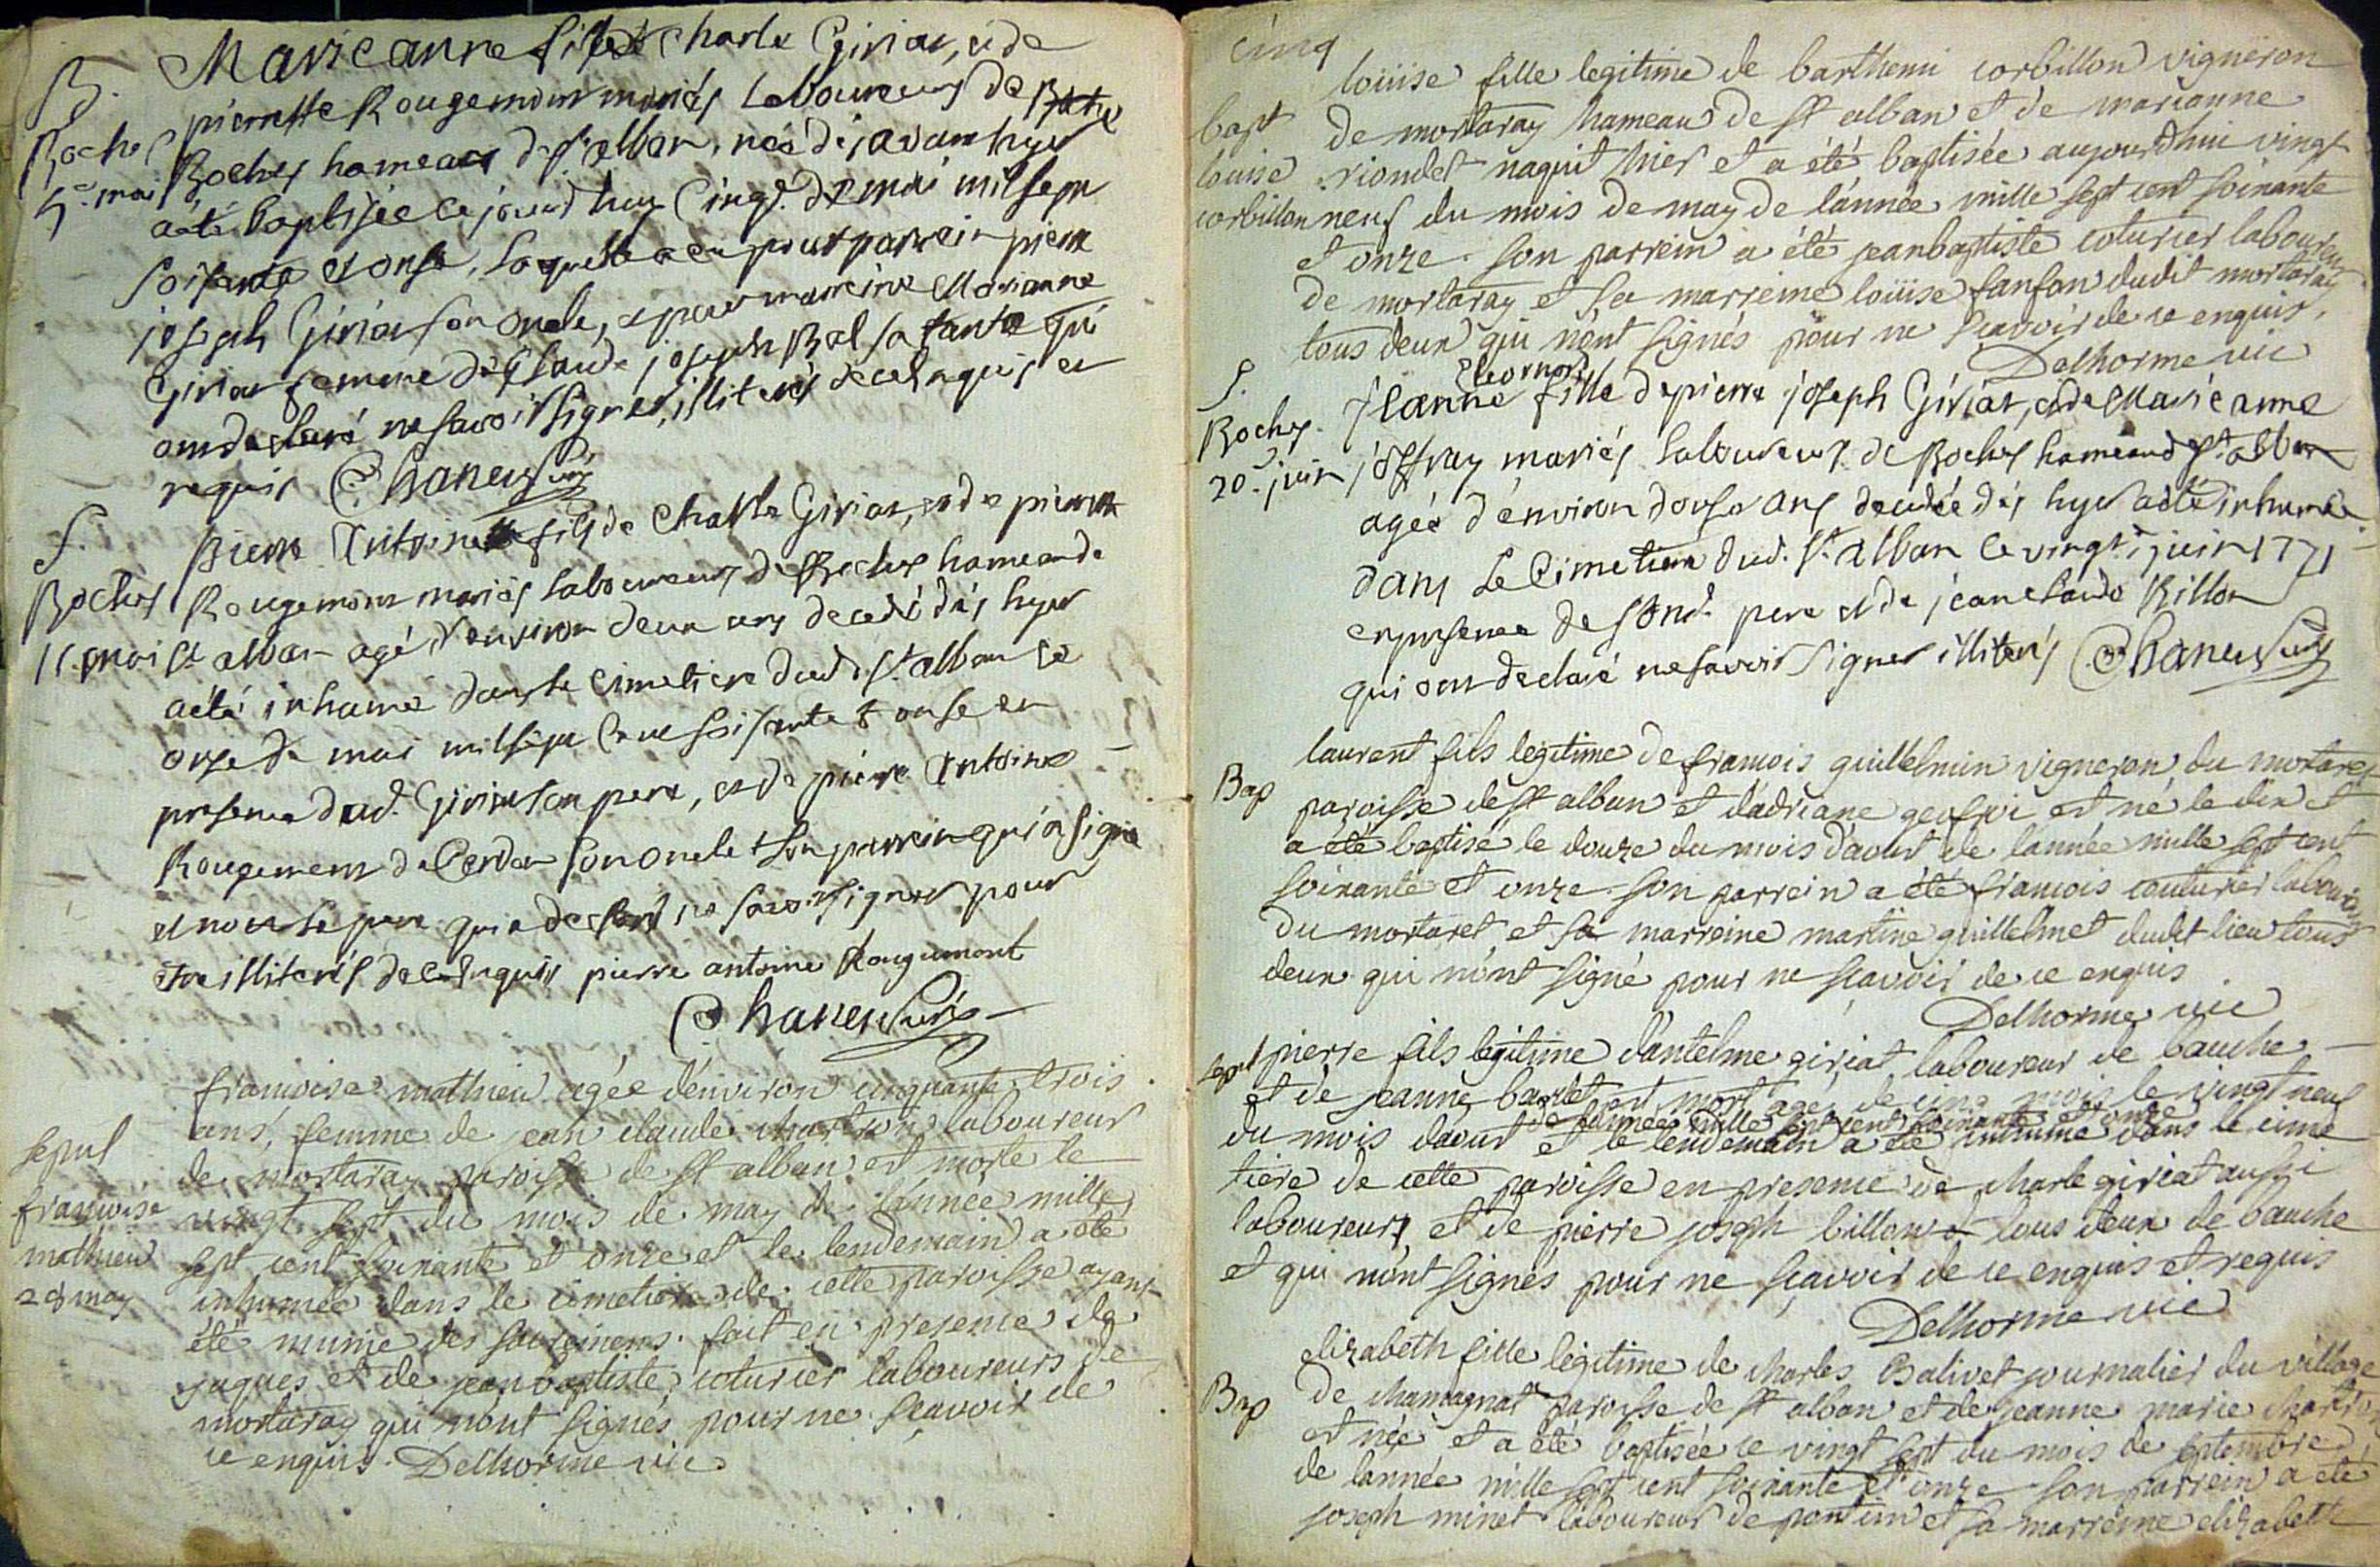 B.
Roches
5e mai
Marie anne fille de Charle Giriat, et de
pierrette Rougemont mariés laboureurs de
Roches hameau de st alban, née dès avant hyer
a été baptisée ce jourd'huy cinqe. de mai mil sept
soisante et onse, laquelle a eu pour parrein pierre
joseph Giriat son oncle, et pour marreine Marianne
Giriat femme de Claude joseph Bal sa tante qui
ont declaré ne savoir signer, illiterés de cel enquis et
requis Chaneu Curé
S.
Roches
11. mai
Pierre Antoine fils de Charle Giriat, et de pierrette
Rougemont mariés laboureurs de Roches hameau de
st alban agé d'environ deux ans decedé dès hyer
a été inhumé dans le cimetiere dud. st. alban le
onse de mai mil sept cent soisante & onse en
presence dud. Giriat son pere, et de pierre Antoine
Rougemont de Cerdon son oncle & son parrein qui a signé
et non le pere qui a declaré ne savoir signer pour
etre illiterés de ce enquis pierre antoine Rougemont
Chaneu Curé
sepul
francoise
mathieu
28 may
francoise mathieu agée d'environ cinquante trois
ans, femme de jean claude chartron laboureur
de mortaray paroisse de st alban est morte le
vingt sept du mois de may de l'année mille
sept cent soixante et onze et le lendemain a été
inhumée dans le cimetiere de cette paroisse ayant
été munie des sacremens. fait en presence de
jaques et de jean baptiste couturier laboureurs de
mortaray qui n'ont signés pour ne sçavoir de
ce enquis. Delhorme vic
cinq
bapt
louise
corbillon
loüise fille legitime de barthemi corbillon vigneron
de mortaray hameau de st alban et de marianne
riondet naquit hier et a été baptisée aujourdhui vingt
neuf du mois de may de l'année mille sept cent soixante
et onze. son parrein a été jeanbaptiste couturier laboureur
de mortaray et sa marreine loüise fanfon dudit mortaray
tous deux qui n'ont signés pour ne sçavoir de ce enquis,
Delhorme vic
S.
Roches.
20. juin
Jeanne Eleornor fille de pierre joseph Giriat, et de Marie anne
joffray mariés laboureurs de Roches hameau de st. alban
agée d'environ douse ans decedée dès hyer a été inhumée
dans le Cimetiere dud. st. alban le vingte juin 1771
en presence de sond. pere et de jean claude Billon
qui ont declaré ne savoir signer illiterés Chaneu Curé
Bap
laurent fils legitime de francois guillelmin vigneron du mortaret
paroisse de st alban et d'adriane geofroi est né le dix et
a été baptisé le douze du mois d'aout de l'année mille sept cent
soixante et onze. son parrein a été francois couturier laboureur
du mortaret et sa marreine martine guillelmet dudit lieu tous
deux qui n'ont signé pour ne sçavoir de ce enquis
Delhorme vic
sepul
pierre fils legitime d'antelme giriat laboureur de bauche
et de jeanne barlet est mort agé de cinq mois le vingt neuf
du mois d'aout de l'année mille sept cent soixante et onze et le lendemain a été inhumé dans le cime
tiere de cette paroisse en presence de charle giriat aussi
laboureur et de pierre joseph billon tous deux de bauche
et qui n'ont signés pour ne sçavoir de ce enquis et requis
Delhorme vic
Bap
elizabeth fille legitime de charles Balivet journalier du village
de chamagnat paroisse de st alban et de jeanne marie
est née et a été baptisée le vingt sept du mois de septembre
de l'année mille sept cent soixante et onze son parrein a été
joseph minet laboureur de et sa marreine elizabeth